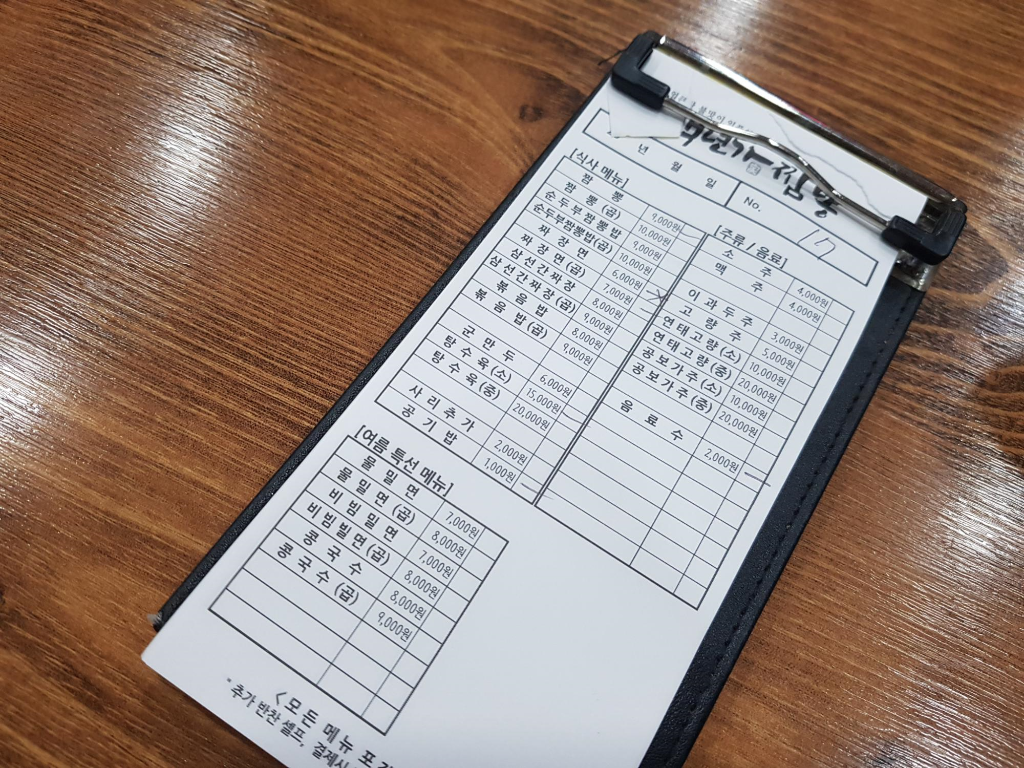 짬뽕
년 월 일
No. 17
[식사 메뉴]
짬 뽕 9,000원
짬 뽕 (곱) 10,000원
순 두 부 짬 뽕 밥 9,000원
순두부짬뽕밥(곱) 10,000원
짜 장 면 6,000원
짜 장 면 (곱) 7,000원
삼 선 간 짜 장 8,000원
삼 선 간 짜 장 (곱) 9,000원
볶 음 밥 8,000원
볶 음 밥 (곱) 9,000원
군 만 두 6,000원
탕 수 육 (소) 15,000원
탕 수 육 (중) 20,000원
사 리 추 가 2,000원
공 기 밥 1,000원
[주류 / 음료]
소 주 4,000원
맥 주 4,000원
이 과 두 주 3,000원
고 량 주 5,000원
연 태 고 량 (소) 10,000원
연 태 고 량 (중) 20,000원
공 보 가 주 (소) 10,000원
공 보 가 주 (중) 20,000원
음 료 수 2,000원
[여름 특선 메뉴]
물 밀 면 7,000원
물 밀 면 (곱) 8,000원
비 빔 밀 면 7,000원
비 빔 밀 면 (곱) 8,000원
콩 국 수 8,000원
콩 국 수 (곱) 9,000원
<모 든 메 뉴 포
* 추가 반찬 셀프, 결제시